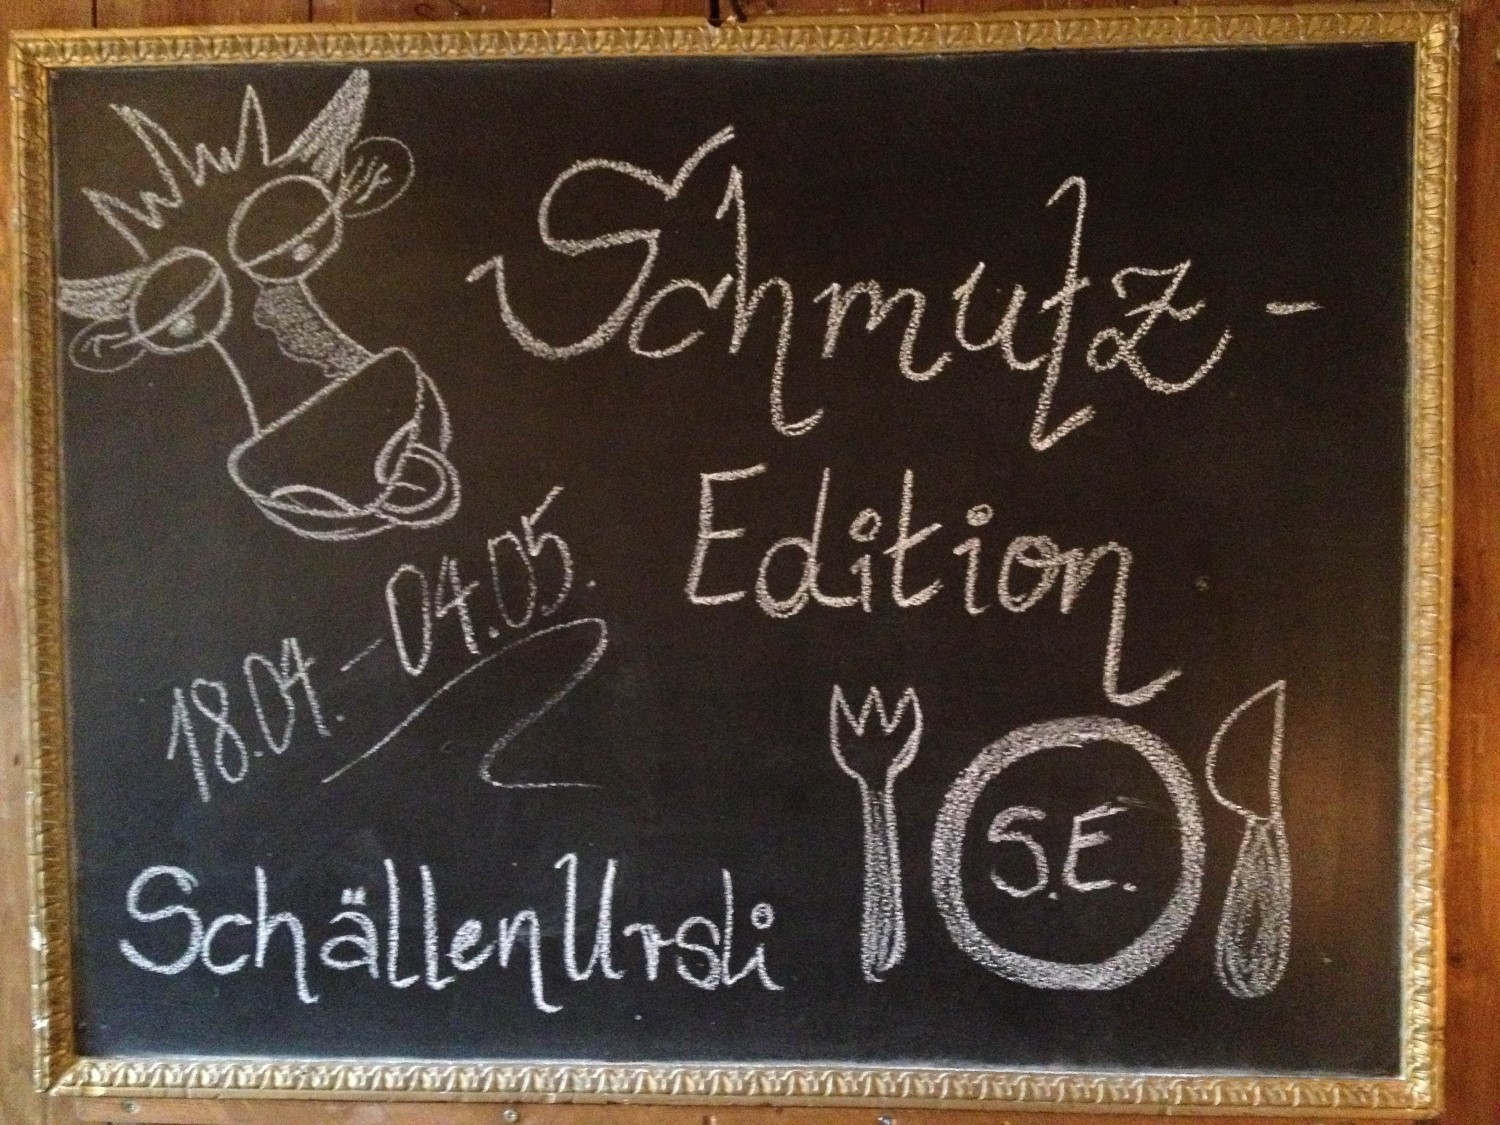 Schmutz-
Edition
18.04.-04.05.
S.E.
SchällenUrsli